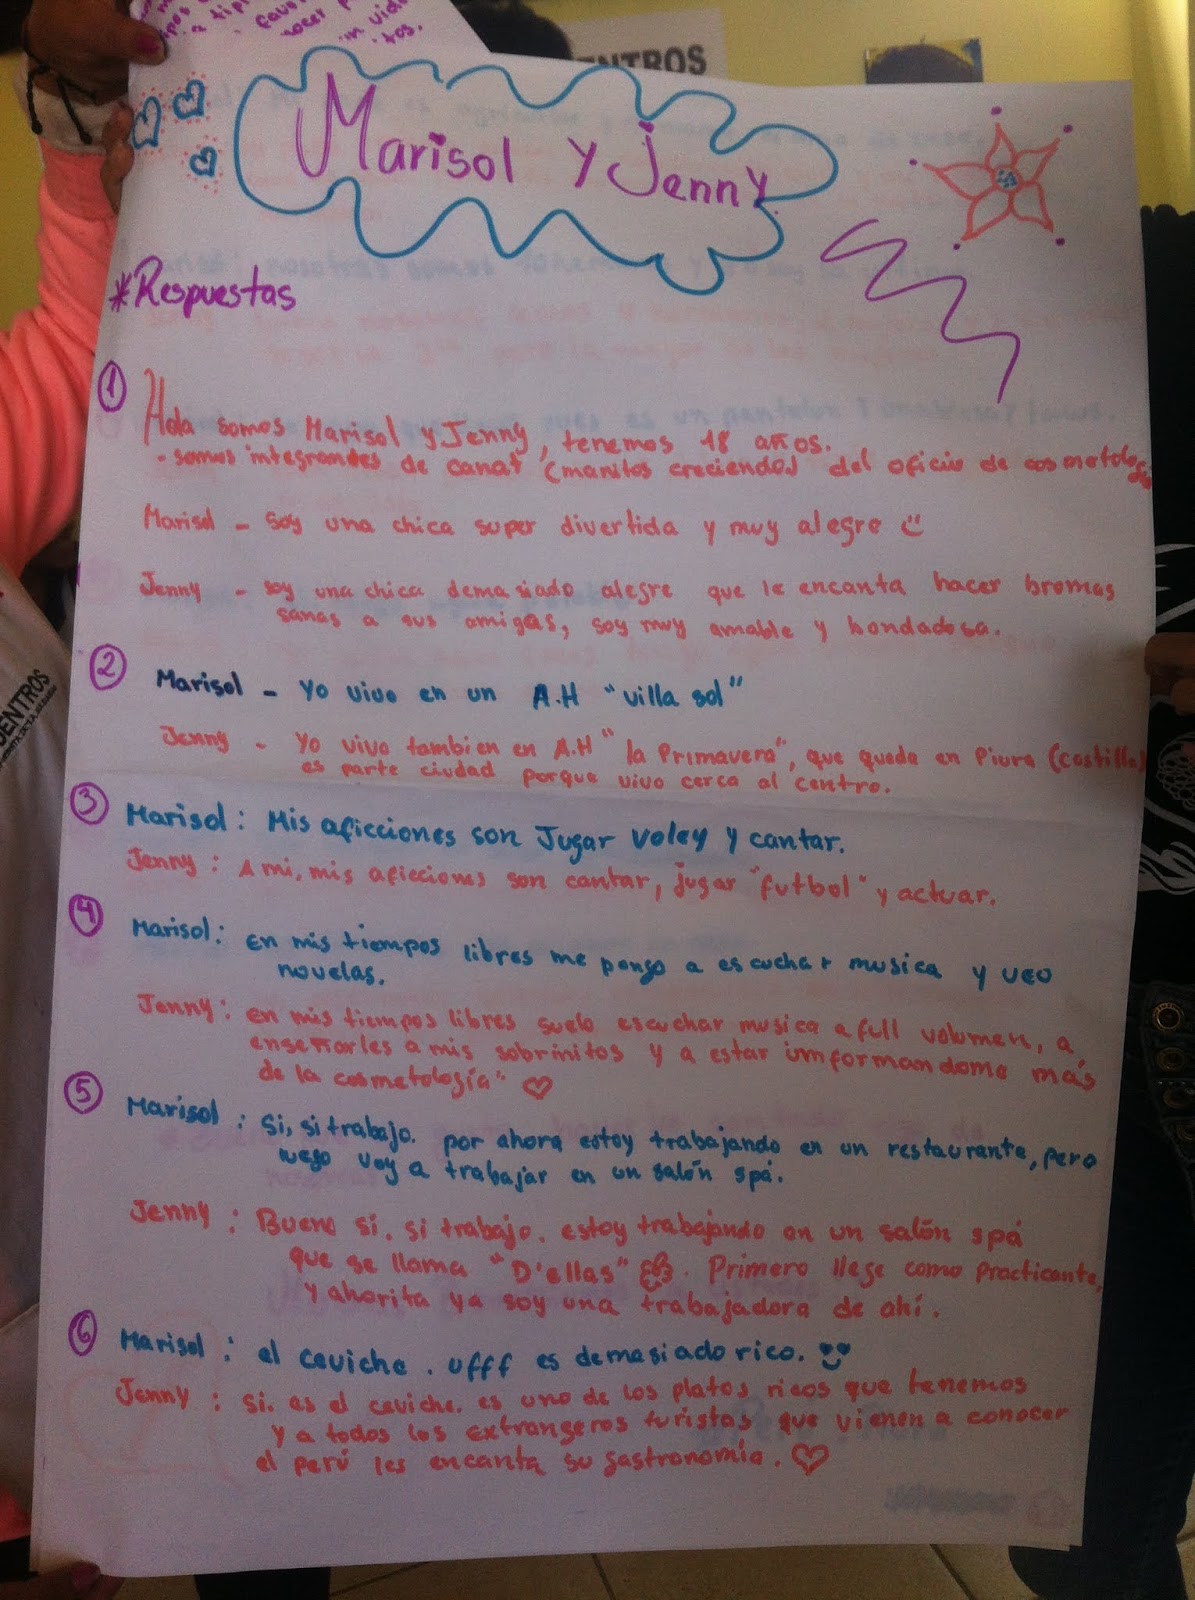 ENTROS
Marisol y Jenny
*Respuestas
① Hola somos Marisol y Jenny, tenemos 18 años.
- somos integrandes de canat (manitos creciendo) del oficio de cosmetología
Marisol - Soy una chica super divertida y muy alegre
Jenny - soy una chica demasiado alegre que le encanta hacer bromas
sanas a sus amigas, soy muy amable y bondadosa.
② Marisol - Yo vivo en un A.H "villa sol"
Jenny - Yo vivo tambien en A.H "la Primavera", que queda en Piura (castilla)
es parte ciudad porque vivo cerca al centro.
③ Marisol: Mis aficciones son Jugar voley y cantar.
Jenny: A mi, mis aficciones son cantar, jugar "futbol" y actuar.
④ Marisol: En mis tiempos libres me pongo a escuchar musica y veo
novelas.
Jenny: en mis tiempos libres suelo escuchar musica a full volumen, a
enseñarles a mis sobrinitos y a estar imformandome más
de la cosmetología" ♡
⑤ Marisol: Si, si trabajo. por ahora estoy trabajando en un restaurante, pero
luego voy a trabajar en un salón spá.
Jenny: Bueno sí, si trabajo. estoy trabajando en un salón spá
que se llama "D'ellas". Primero llege como practicante,
y ahorita ya soy una trabajadora de ahí.
⑥ Marisol: el ceviche. ufff es demasiado rico.
Jenny: Si. es el ceviche. es uno de los platos ricos que tenemos
y a todos los extrangeros turistas que vienen a conocer
el perú les encanta su gastronomía. ♡
ENTROS